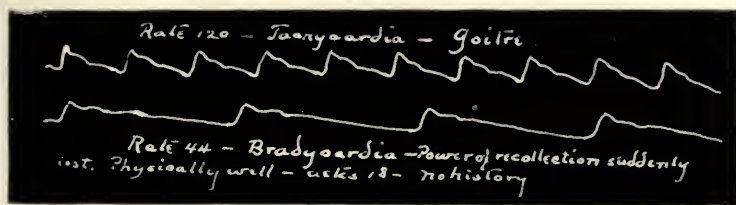 Rate 120 - Tachycardia - Goitre
Rate 44 - Bradycardia - Power of recollection suddenly
lost. Physically well - 18 - no history